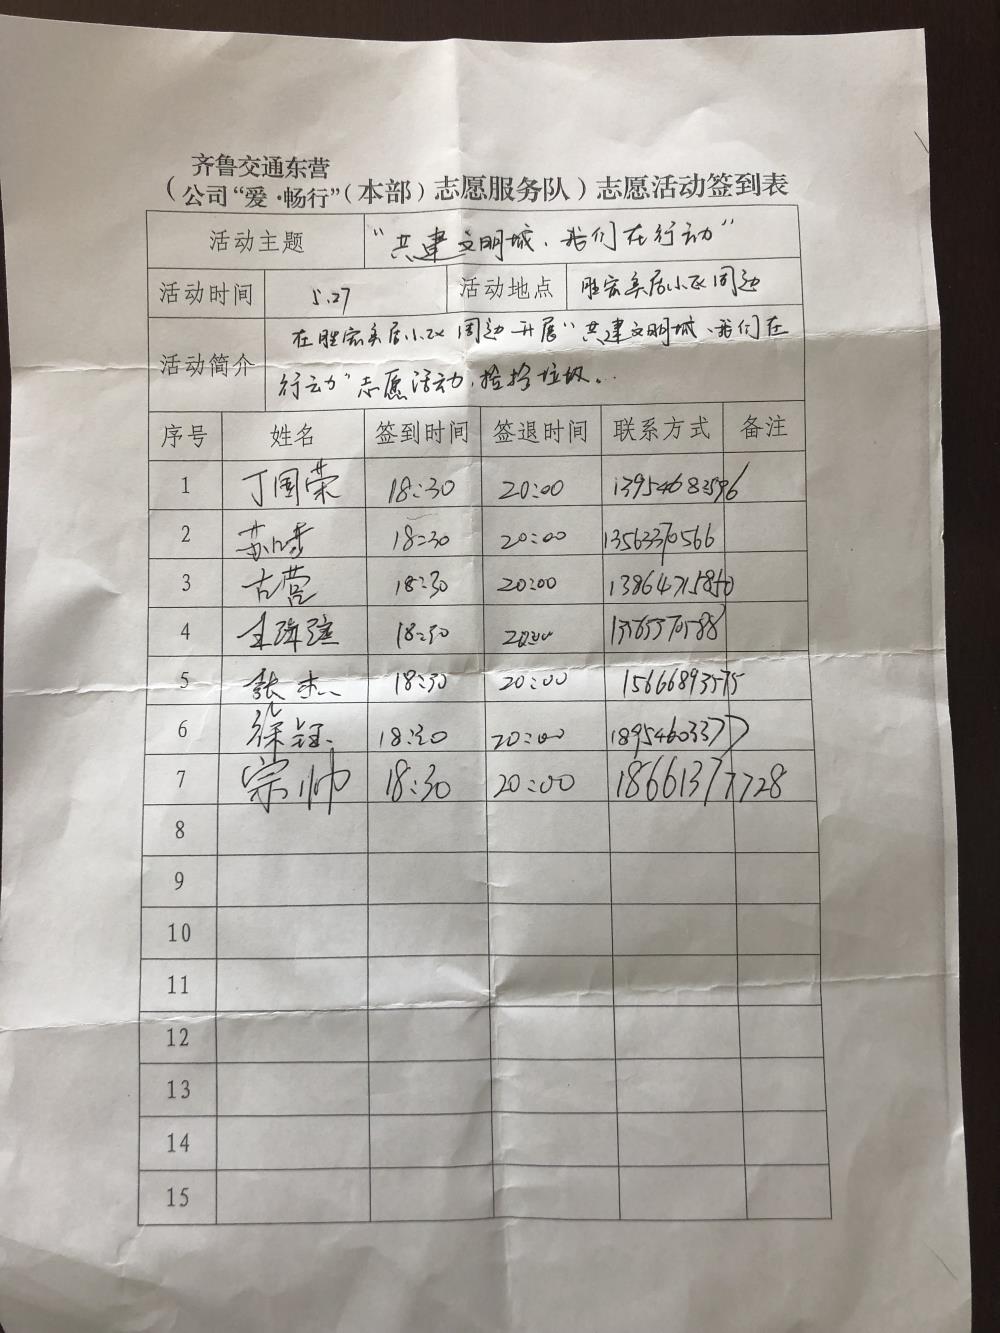 齐鲁交通东营
（公司“爱·畅行”（本部）志愿服务队）志愿活动签到表
活动主题 “共建文明城、我们在行动”
活动时间 5.27 活动地点 胜宏美居小区周边
在胜宏美居小区周边开展“共建文明城、我们在
活动简介
行动”志愿活动，捡拾垃圾。
序号 姓名 签到时间 签退时间 联系方式 备注
1 丁国荣 18:30 20:00 13954683596
2 苏晴 18:30 20:00 13563370566
3 古营 18:30 20:00 13864715850
4 18:30 20:00
5 张杰 18:30 20:00 15666893575
6 徐钰 18:30 20:00 18954603377
7 宗帅 18:30 20:00 18661377728
8
9
10
11
12
13
14
15